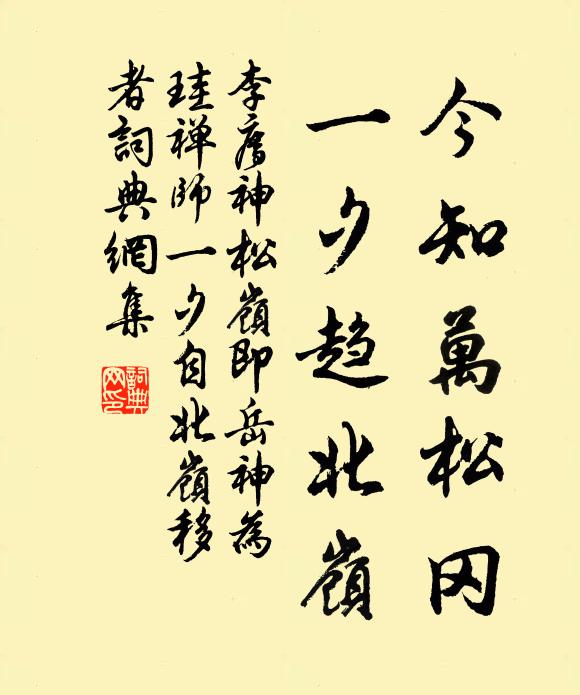 今知萬松冈
一夕趋北嶺
李廌神松嶺即岳神為
珪禅師一夕自北嶺移
者詞典網集
詞典
网印